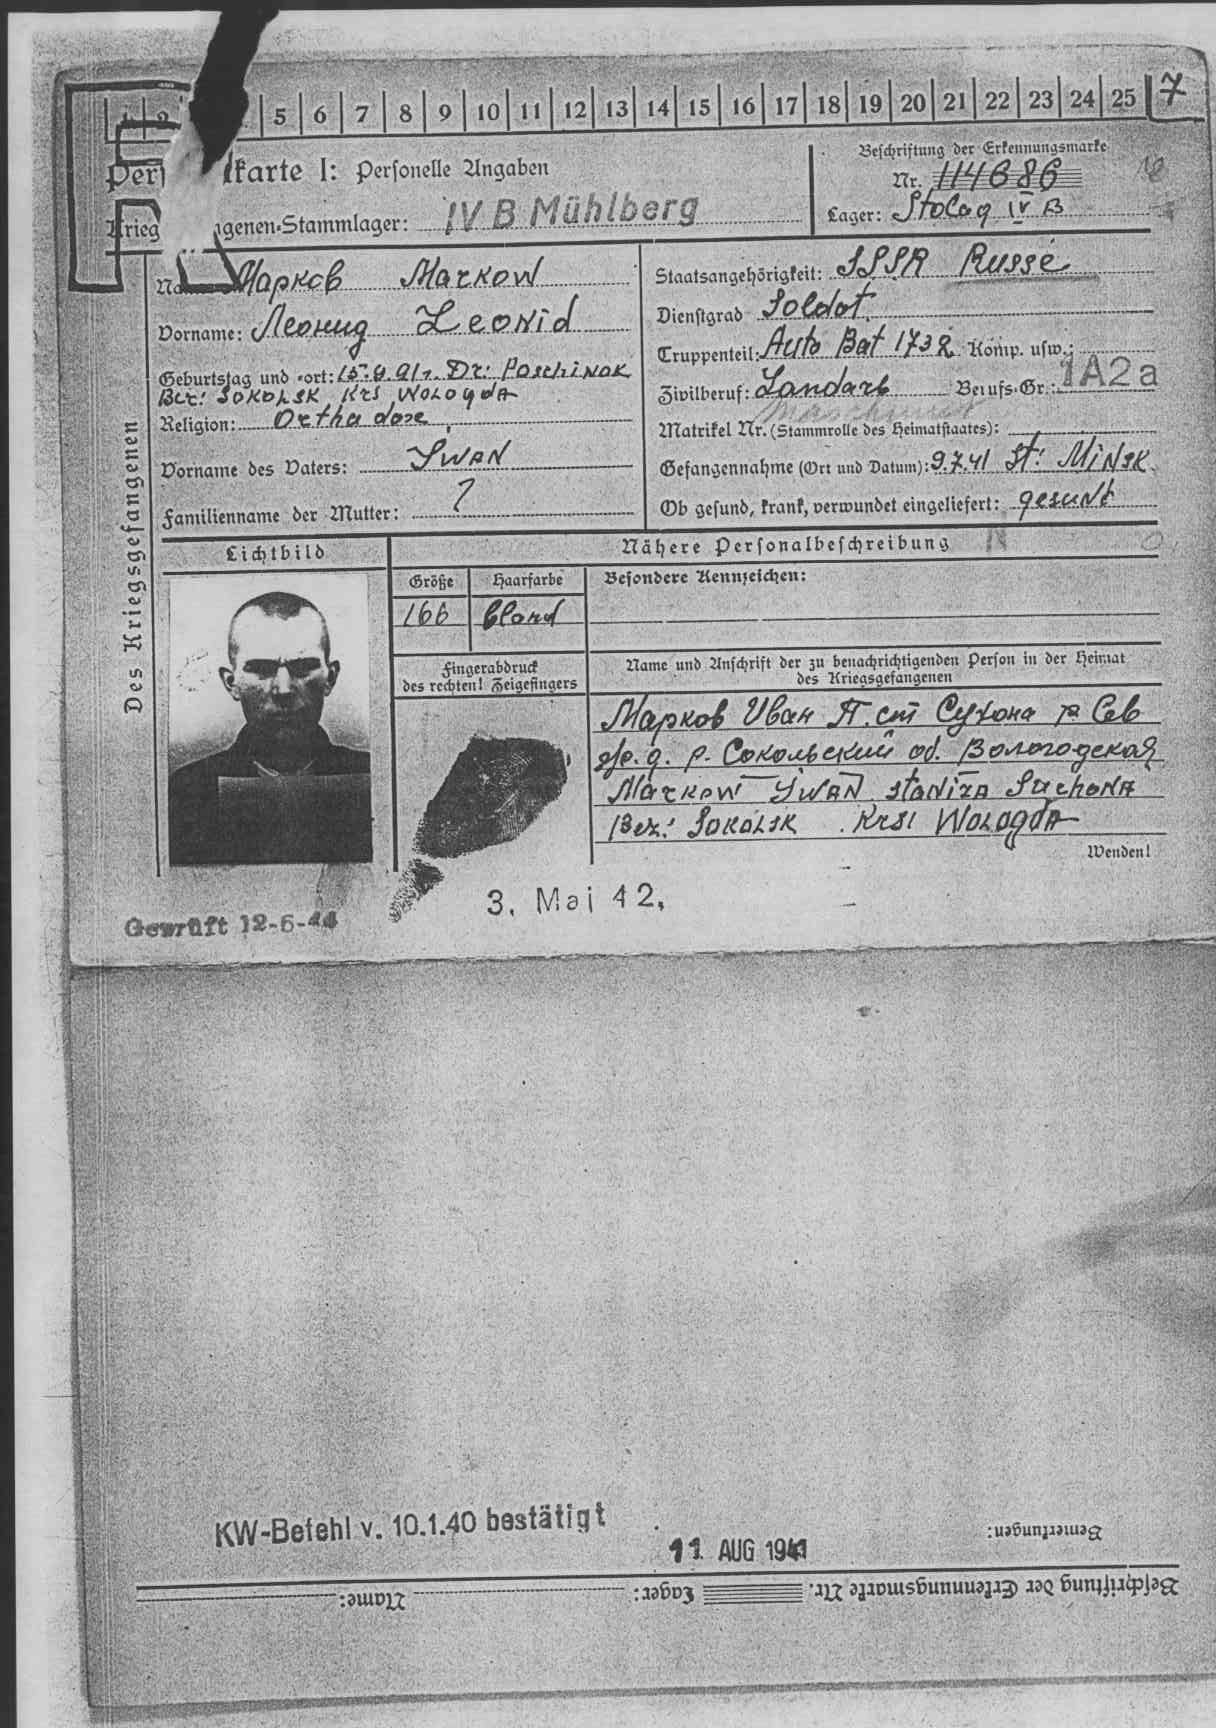 5 6 7 8 9 10 11 12 13 14 15 16 17 18 19 20 21 22 23 24 25 7
Pers lkarte I: Personelle Angaben
Krieg genen-Stammlager: IV B Mühlberg
Beschriftung der Erkennungsmarke
Nr. 114686
Lager: Stalag IV B
Des Kriegsgefangenen
Марков Markow
Vorname: Леонид Leonid
Geburtstag und -ort: Dr: Poschinok
Bez: Sokolsk Krs Wologda
Religion: Orthadoxe
Vorname des Vaters: Iwan
Familienname der Mutter: ?
Staatsangehörigkeit: SSSR Russe
Dienstgrad Soldat
Truppenteil: Auto Bat 1732 Komp. usw.:
Zivilberuf: Landarb Berufs-Gr.: 1A2a
Matrikel Nr. (Stammrolle des Heimatstaates):
Gefangennahme (Ort und Datum): 9.7.41 St: Minsk
Ob gesund, krank, verwundet eingeliefert: gesund
Lichtbild
Nähere Personalbeschreibung N
Größe Haarfarbe Besondere Kennzeichen:
166 blond
Fingerabdruck
des rechten! Zeigefingers
Name und Anschrift der zu benachrichtigenden Person in der Heimat
des Kriegsgefangenen
Марков Иван П. ст Сухона Сев
ж.д. р. Сокольский об. Вологодская
Markow Iwan staniza Suchona
Bez: Sokolsk Krs: Wologda
Wenden!
Geprüft 12-6-44
3. Mai 42.
KW-Befehl v. 10.1.40 bestätigt
11. AUG 1941
Bemerkungen:
Beschriftung der Erkennungsmarke Nr. Lager: Name: